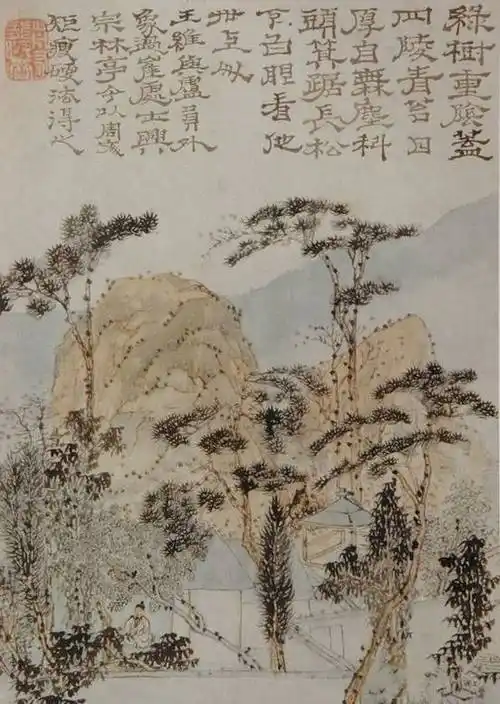 綠樹重陰蓋
四隣青苔日
厚自無塵科
頭箕踞長松
下白眼看他
世上人
王維與盧員外
象過崔處士興
宗林亭 今以周
法得之